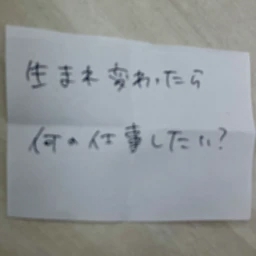 生まれ変わったら
何の仕事したい?